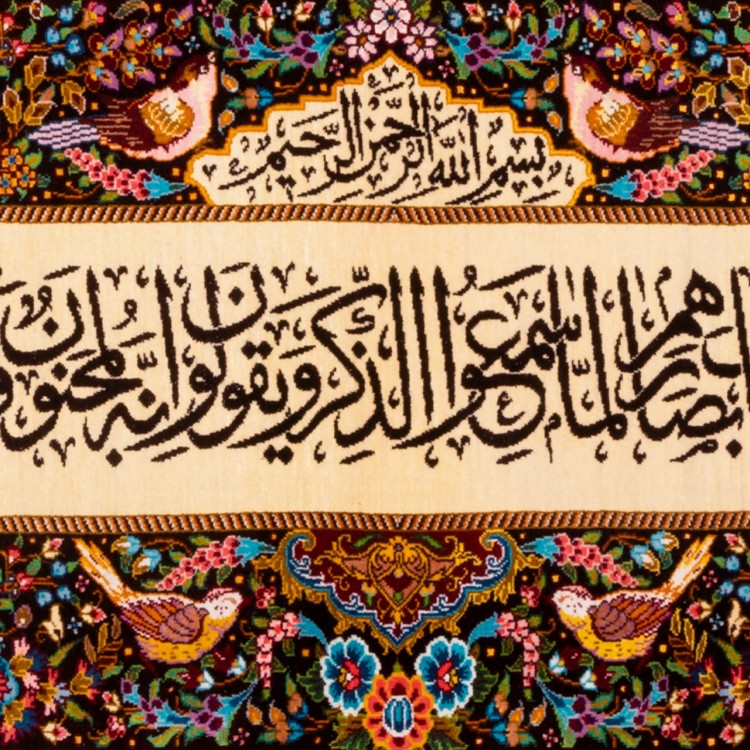 بِسْمِ اللّٰهِ الرَّحْمٰنِ الرَّحِيمِ
بأبصارهم لمّا سمعوا الذّكر ويقولون انّه لمجنون